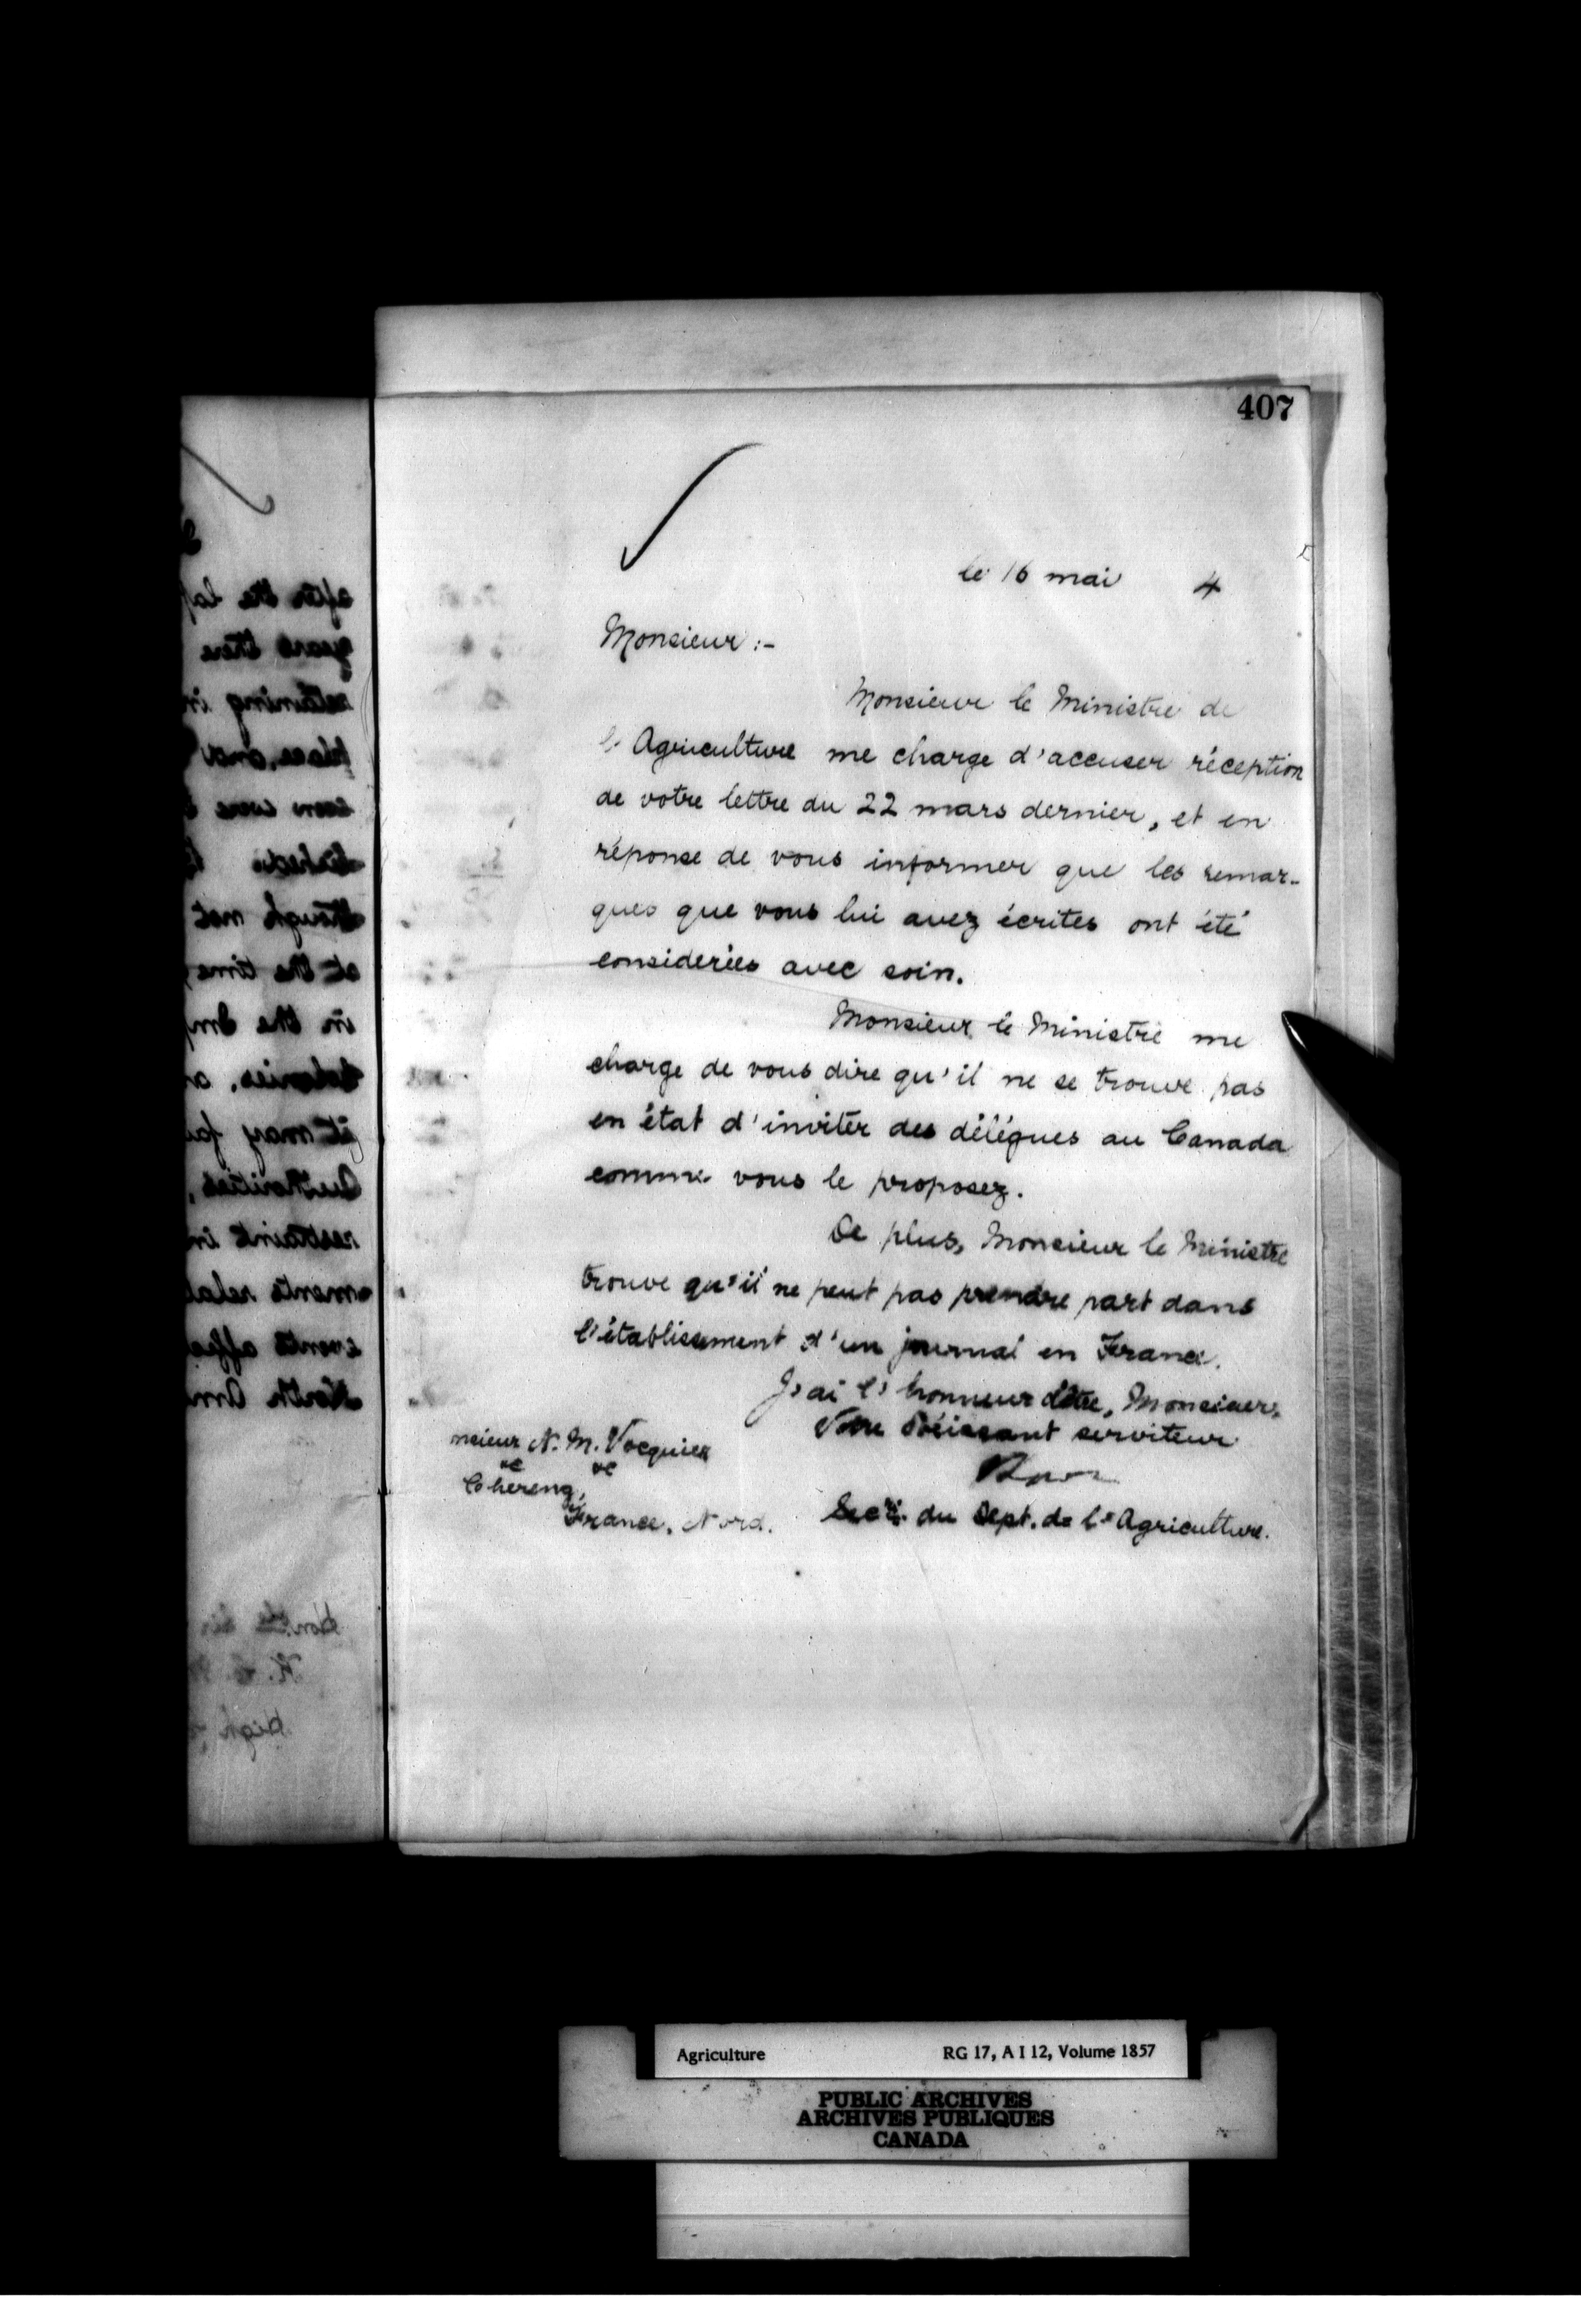 407
le 16 mai 4
Monsieur :-
Monsieur le Ministre de
l'Agriculture me charge d'accuser réception
de votre lettre du 22 mars dernier, et en
réponse de vous informer que les remar-
ques que vous lui avez écrites ont été
considerées avec soin.
Monsieur le Ministre me
charge de vous dire qu'il ne se trouve pas
en état d'inviter des délégues au Canada
comme vous le proposez.
De plus, Monsieur le Ministre
trouve qu'il ne peut pas prendre part dans
l'établissement d'un journal en France.
J'ai l'honneur d'être, Monsieur,
Votre obéissant serviteur
nsieur N. M. Vocquier
Chereng,
France, Nord.
Secre. du Dept. de l'Agriculture.
after the
years there
retaining
place, and
soon were
though not
at the time
in the
colonies,
it may
Authorities,
restraint
-ments
events
North
High
Agriculture RG 17, A I 12, Volume 1857
PUBLIC ARCHIVES
ARCHIVES PUBLIQUES
CANADA